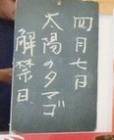 四月七日
太陽のタマゴ
解禁日